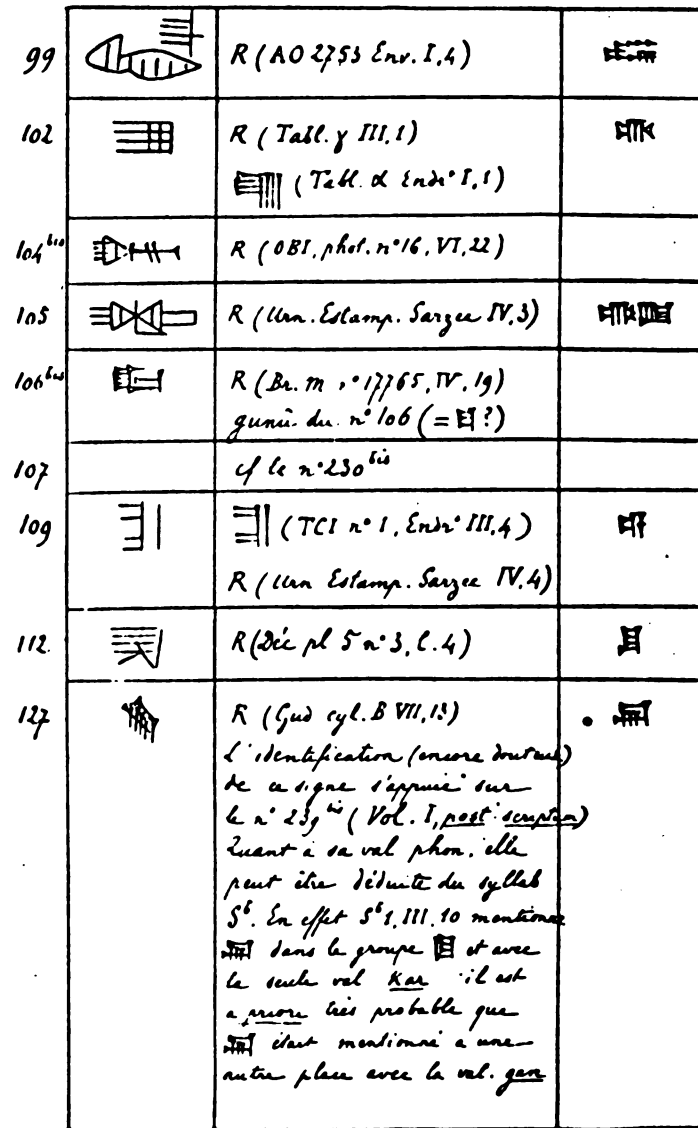 99 R (AO 2753 Env. I, 4)
102 R (Tabl. γ III, 1)
(Tabl. α Endr° I, 1)
104 bis R (OBI, phot. n° 16, VI, 22)
105 R (Urn. Estamp. Sarzec IV, 3)
106 bis R (Br. m n° 17765, IV, 19)
gunû du n° 106 (= ?)
107 cf le n° 230 bis
109 (TCI n° I, Endr° III, 4)
R (Urn Estamp. Sarzec IV, 4)
112. R (Déc pl 5 n° 3, C. 4)
127 R (Gud cyl. B VII, 13)
L'identification (encore douteuse)
de ce signe s'appuie sur
le n° 239 bis (Vol. I, post scriptum)
Quant à sa val phon. elle
peut être déduite du syllab
Sᵇ. En effet Sᵇ 1, III, 10 mentionne
dans le groupe et avec
la seule val Kar il est
a priori très probable que
était mentionné a une
autre place avec la val. gan